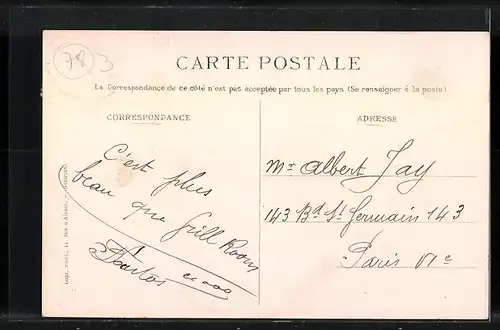 78
3
CARTE POSTALE
La Correspondance de ce côté n'est pas acceptée par tous les pays (Se renseigner à la poste)
CORRESPONDANCE
C'est plus
beau que Grill Room
ADRESSE
Mr Albert Jay
143 Bd St Germain 143
Paris VIe